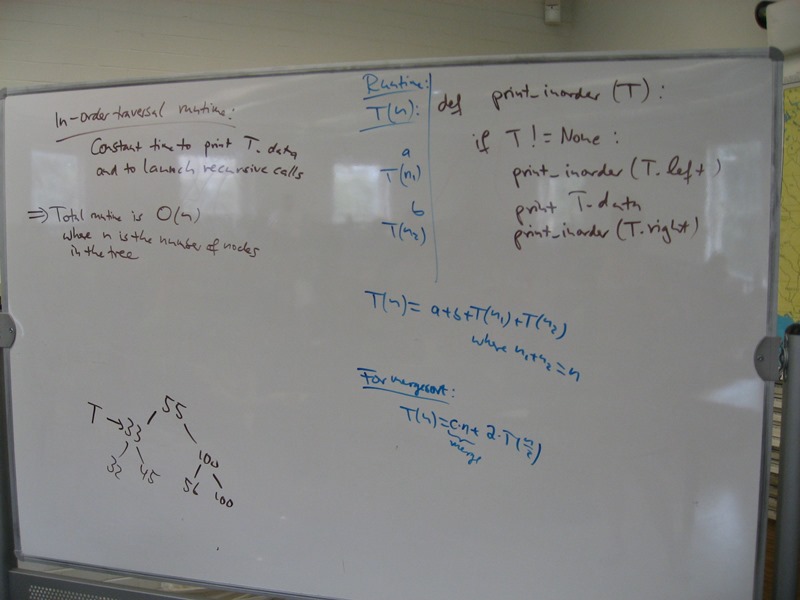 In-order-traversal runtime:
Constant time to print T.data
and to launch recursive calls
⇒ Total runtime is O(n)
where n is the number of nodes
in the tree
T → 33
55
32
45
100
56
100
Runtime:
T(n):
a
T(n₁)
b
T(n₂)
def print_inorder (T):
if T != None:
print_inorder (T.left)
print T.data
print_inorder (T.right)
T(n) = a+b+T(n₁)+T(n₂)
where n₁+n₂=n
For mergesort:
T(n)=c·n+2·T(n/2)
merge